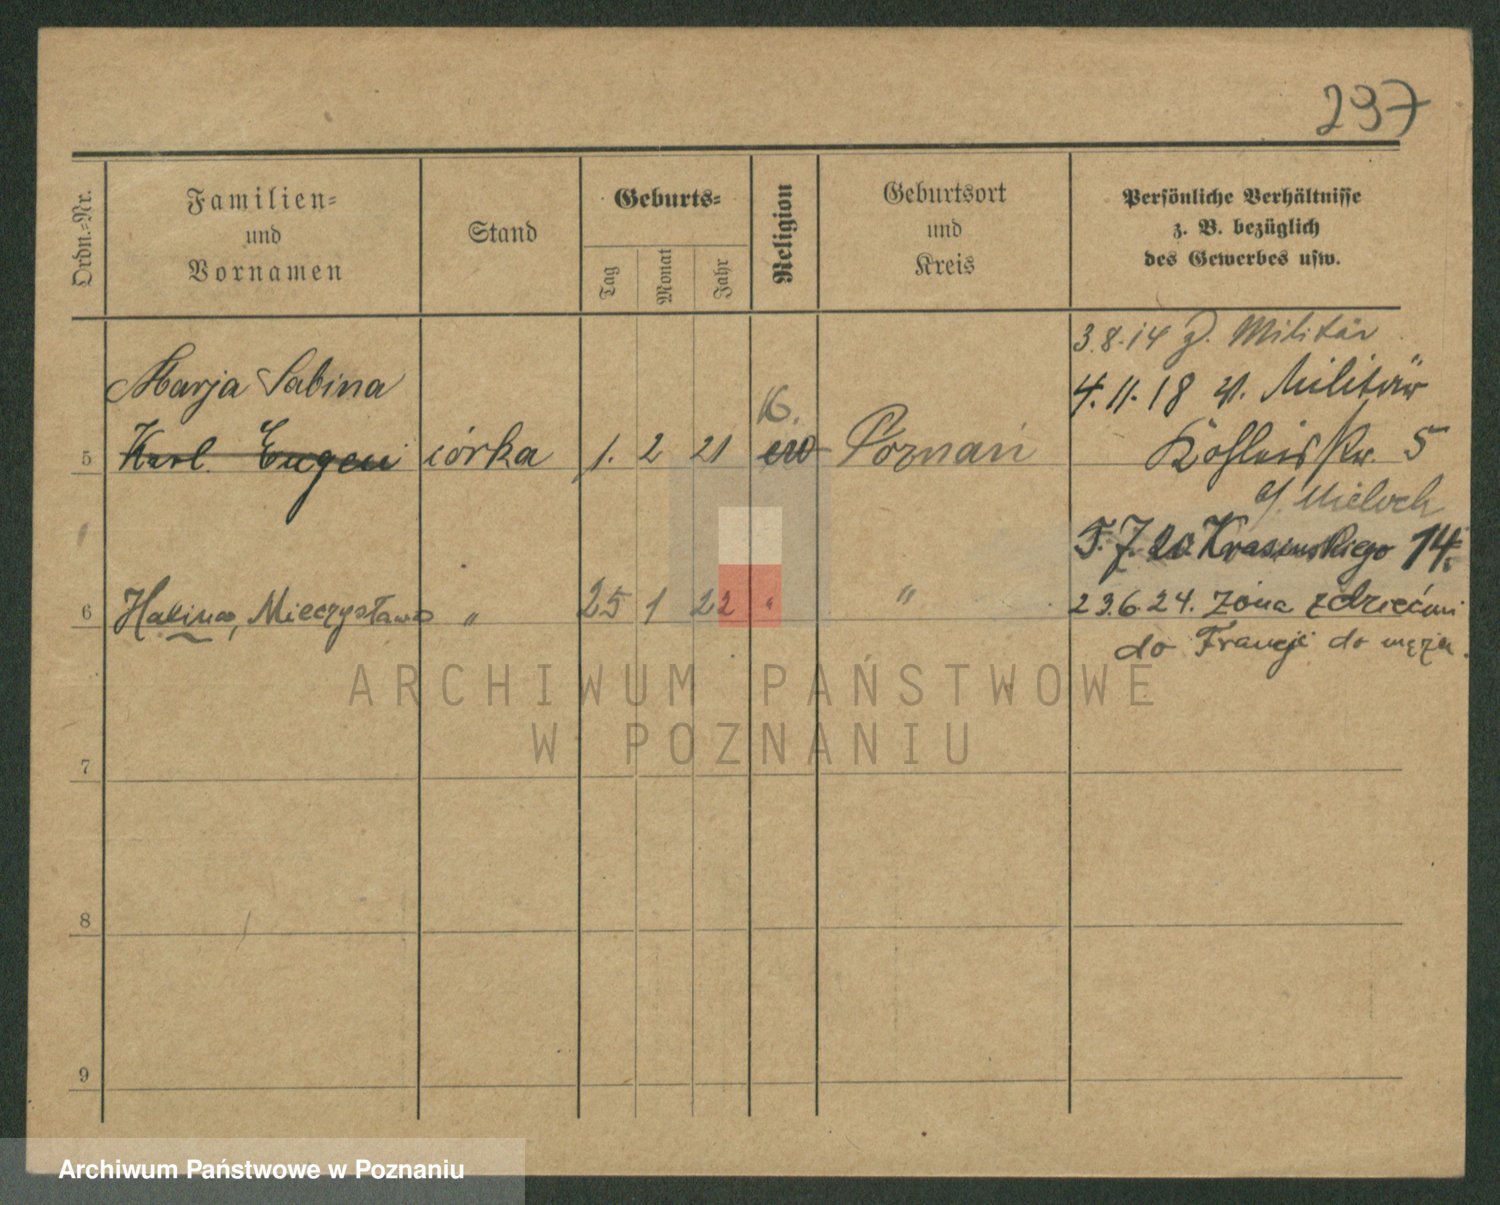 237
Ordn.-Nr.
Familien-
und
Vornamen
Stand
Geburts-
Tag
Monat
Jahr
Religion
Geburtsort
und
Kreis
Persönliche Verhältnisse
z. B. bezüglich
des Gewerbes usw.
3.8.14 z. Militär
4.11.18 v. Militär
Marja Sabina
5 Karl Eugen córka 1. 2 21 Poznań
5
Mieloch
T. J. 20 Krasinskiego 14.
6 Halina, Mieczysława " 25 1 22 " "
23.6.24. żona z dziećmi
do Francji do męża.
7
8
9
ARCHIWUM PAŃSTWOWE
W POZNANIU
Archiwum Państwowe w Poznaniu